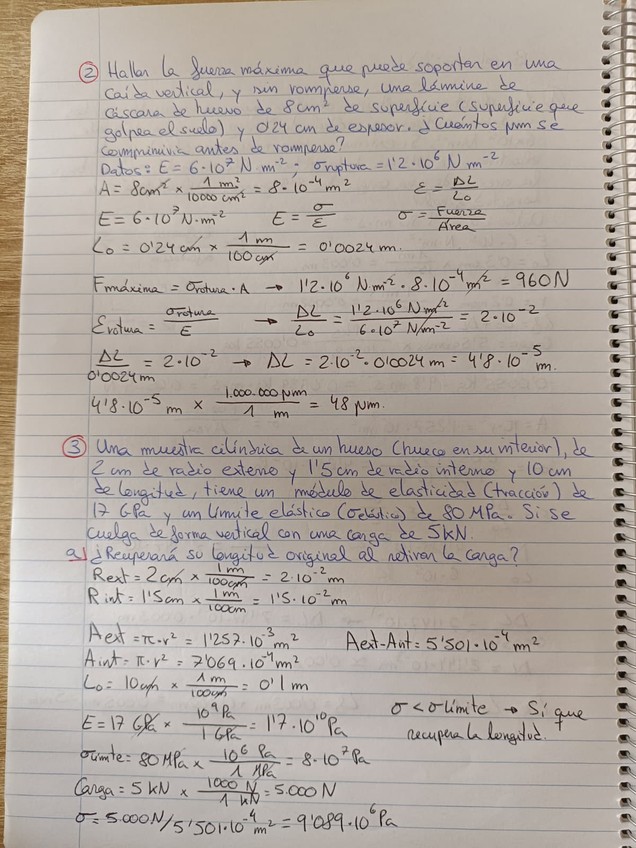 ② Hallar la fuerza máxima que puede soportar en una
caída vertical, y sin romperse, una lámina de
cáscara de huevo de 8cm² de superficie (superficie que
golpea el suelo) y 0'24 cm de espesor. ¿Cuántos µm se
comprimiría antes de romperse?
Datos: E = 6·10⁷ N·m⁻²; σruptura = 1'2·10⁶ N m⁻²
A = 8cm² × 1 m²/10000 cm² = 8·10⁻⁴ m² ε = ΔL/L₀
E = 6·10⁷ N·m⁻² E = σ/ε σ = Fuerza/Área
L₀ = 0'24 cm × 1 m/100 cm = 0'0024 m.
Fmáxima = σrotura · A → 1'2·10⁶ N m⁻² · 8·10⁻⁴ m² = 960 N
εrotura = σrotura/E → ΔL/L₀ = 1'2·10⁶ N m⁻²/6·10⁷ N/m⁻² = 2·10⁻²
ΔL/0'0024 m = 2·10⁻² → ΔL = 2·10⁻² · 0'0024 m = 4'8·10⁻⁵ m.
4'8·10⁻⁵ m × 1.000.000 µm/1 m = 48 µm.
③ Una muestra cilíndrica de un hueso (hueco en su interior), de
2 cm de radio externo y 1'5 cm de radio interno y 10 cm
de longitud, tiene un módulo de elasticidad (tracción) de
17 GPa y un límite elástico (σelástico) de 80 MPa. Si se
cuelga de forma vertical con una carga de 5 kN.
a) ¿Recuperará su longitud original al retirar la carga?
Rext = 2 cm × 1 m/100 cm = 2·10⁻² m
Rint = 1'5 cm × 1 m/100 cm = 1'5·10⁻² m
Aext = π·r² = 1'257·10⁻³ m² Aext-Aint = 5'501·10⁻⁴ m²
Aint = π·r² = 7'069·10⁻⁴ m²
L₀ = 10 cm × 1 m/100 cm = 0'1 m
E = 17 GPa × 10⁹ Pa/1 GPa = 1'7·10¹⁰ Pa σ < σlímite → Sí que
recupera la longitud.
σlímite = 80 MPa × 10⁶ Pa/1 MPa = 8·10⁷ Pa
Carga = 5 kN × 1000 N/1 kN = 5.000 N
σ = 5.000 N/5'501·10⁻⁴ m² = 9'089·10⁶ Pa